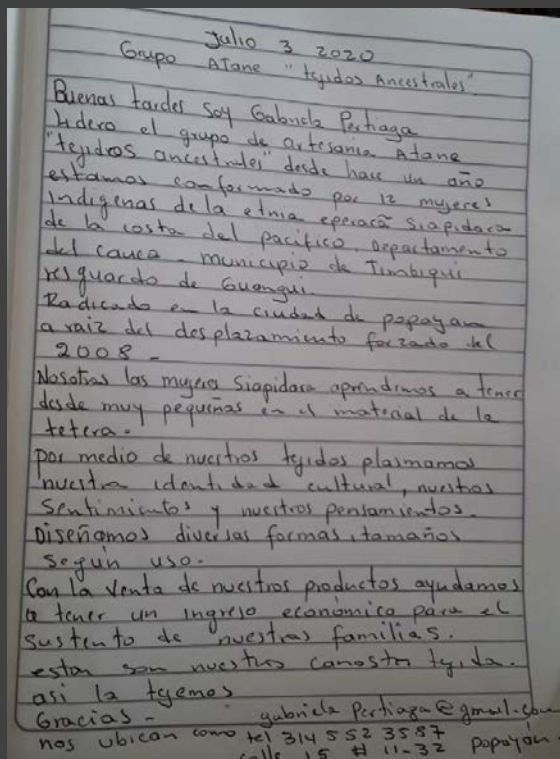 Julio 3 2020
Grupo ATane "tejidos Ancestrales"
Buenas tardes Soy Gabriela Pertiaga
Lidero el grupo de artesania Atane
"tejidos ancestrales" desde hace un año
estamos conformado por 12 mujeres
indigenas de la etnia eperacã Siapidara
de la costa del pacifico, Departamento
del cauca - municipio de Timbiqui
resguardo de Guangui.
Radicado en la ciudad de popayan
a raiz del desplazamiento forzado del
2008 -
Nosotras las mujeres Siapidara aprendimos a tener
desde muy pequeñas en el material de la
tetera.
por medio de nuestros tejidos plasmamos
nuestra identidad cultural, nuestros
Sentimientos y nuestros pensamientos.
Diseñamos diversas formas, tamaños
según uso.
Con la Venta de nuestros productos ayudamos
a tener un ingreso económico para el
sustento de nuestras familias.
estan son nuestros canasto tejida.
asi la tejemos
Gracias - gabriela Pertiaga@gmail.com
nos ubican como tel 314 552 3587
calle 15 # 11-32 popayán.